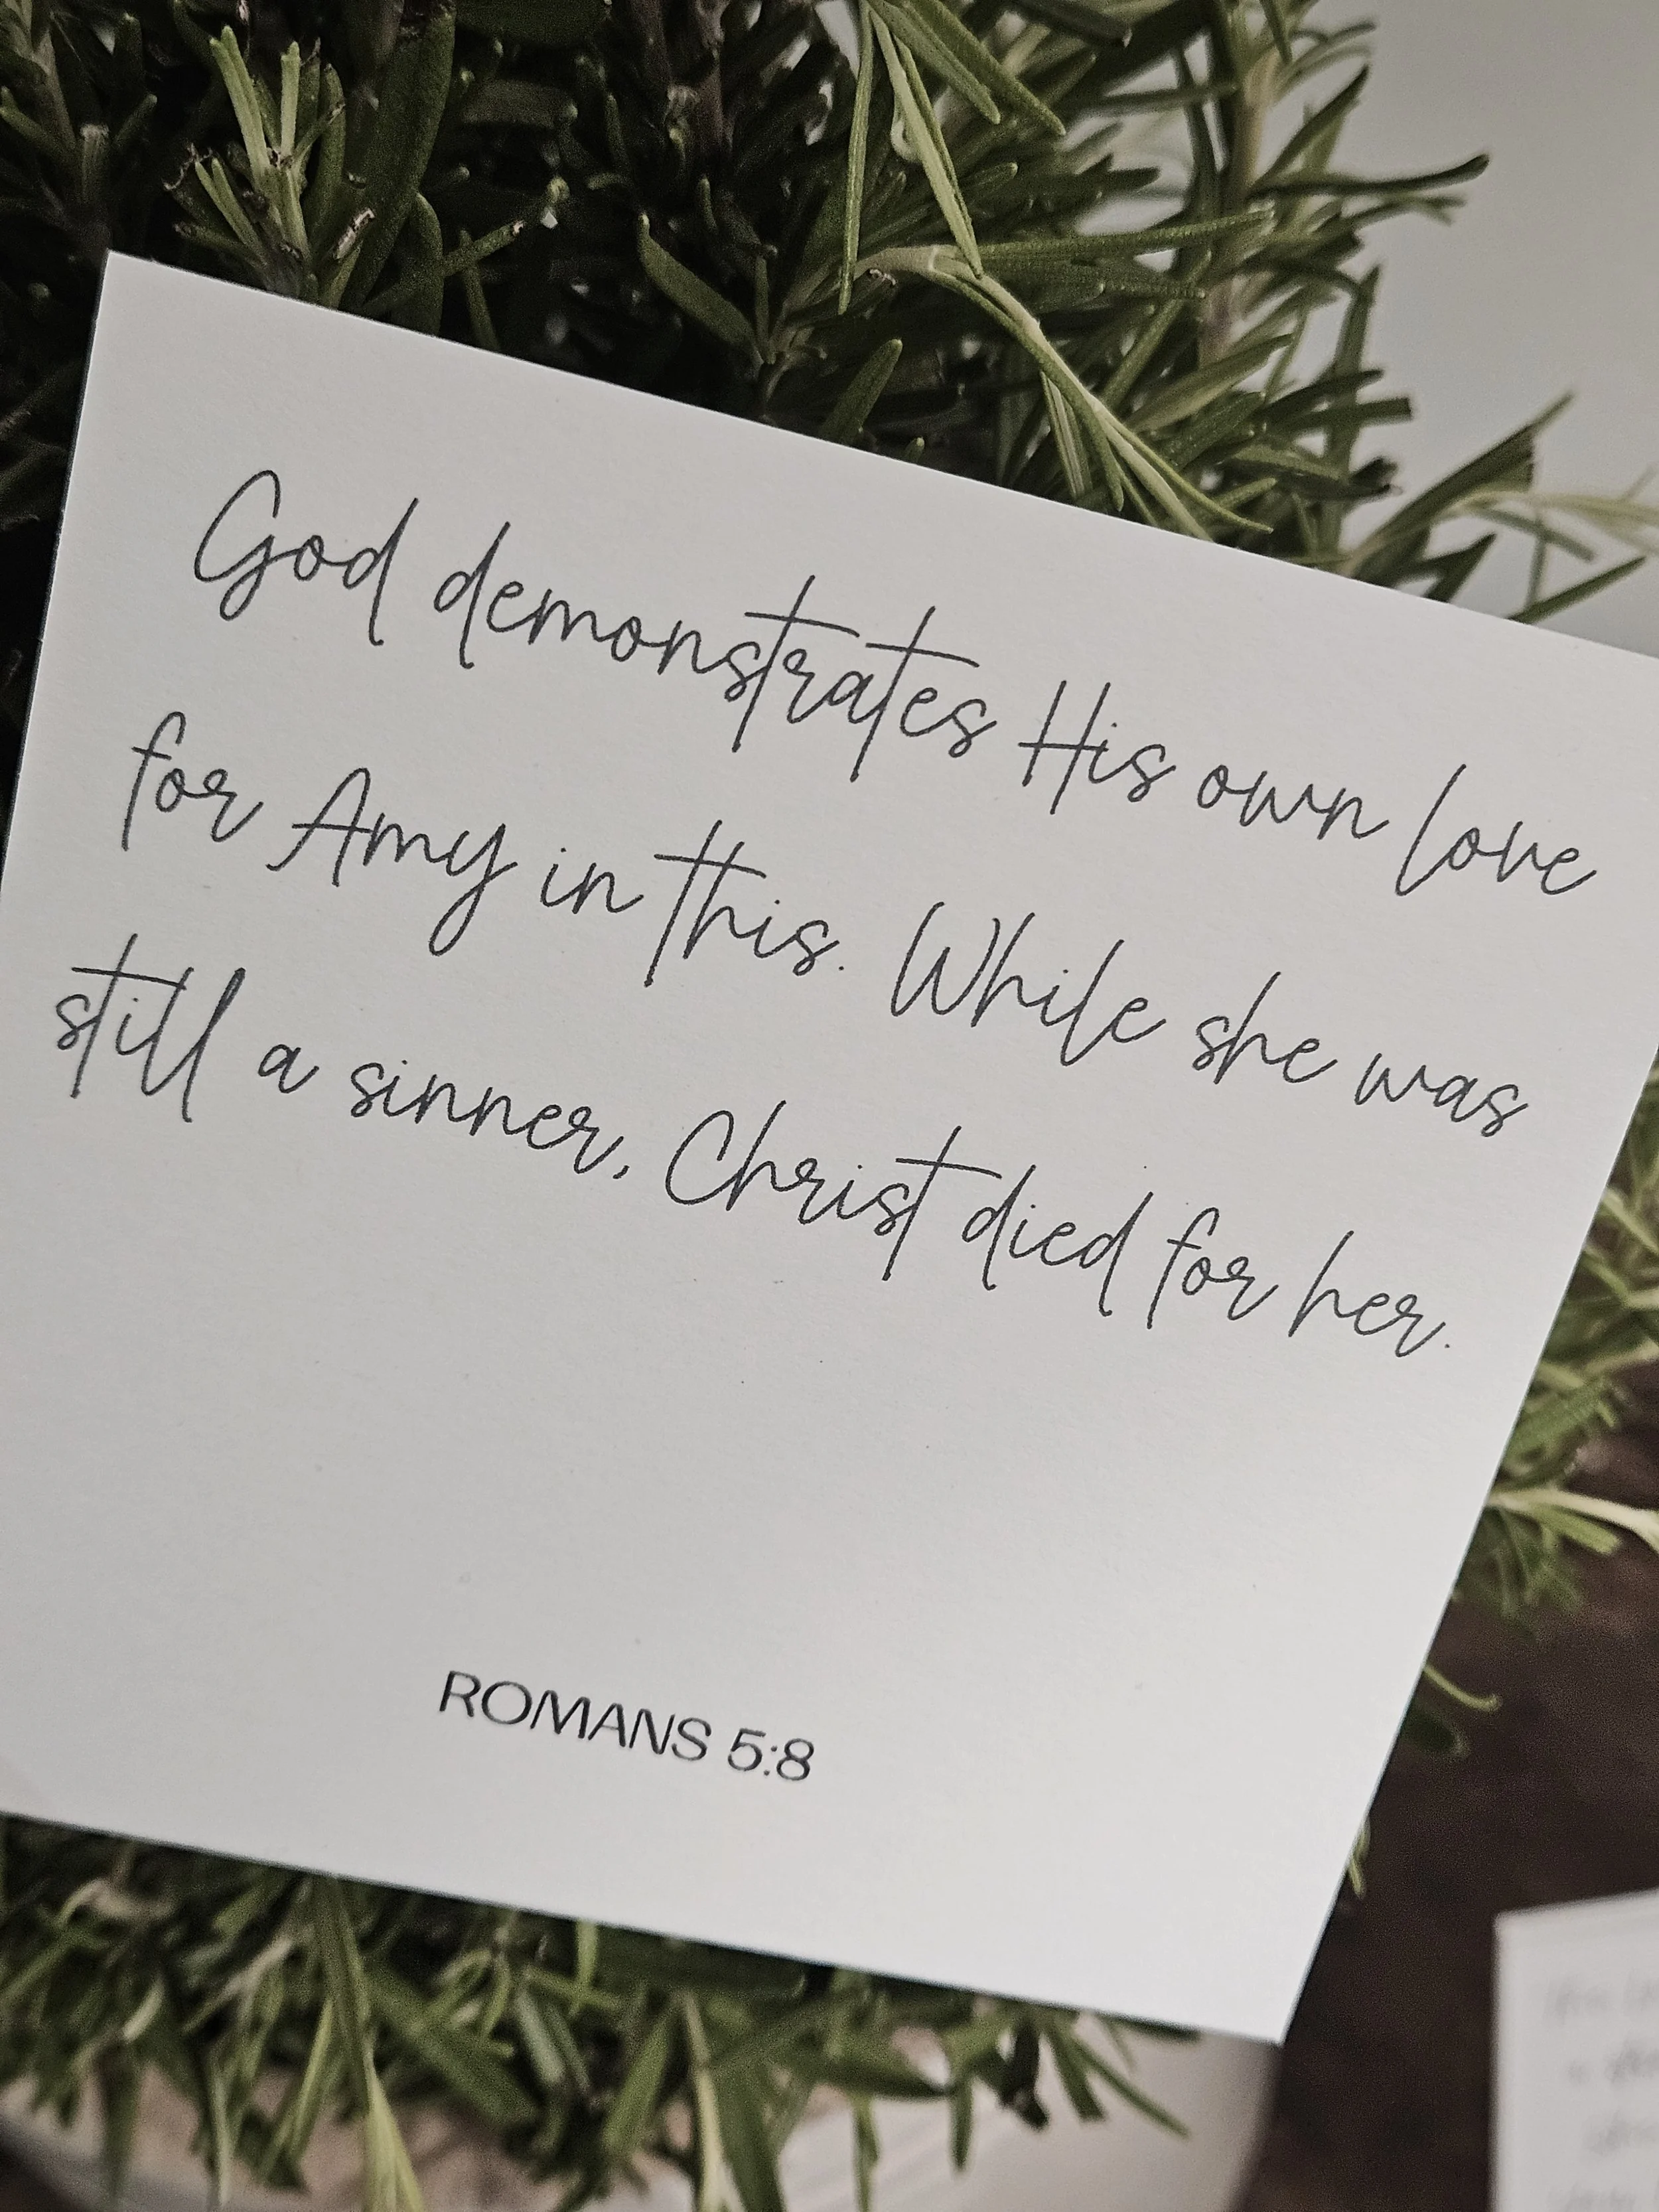 God demonstrates His own love
for Amy in this. While she was
still a sinner, Christ died for her.
ROMANS 5:8